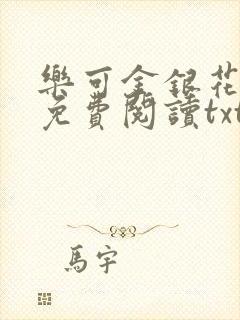 樂可金銀花
免費閱讀txt
馬宇